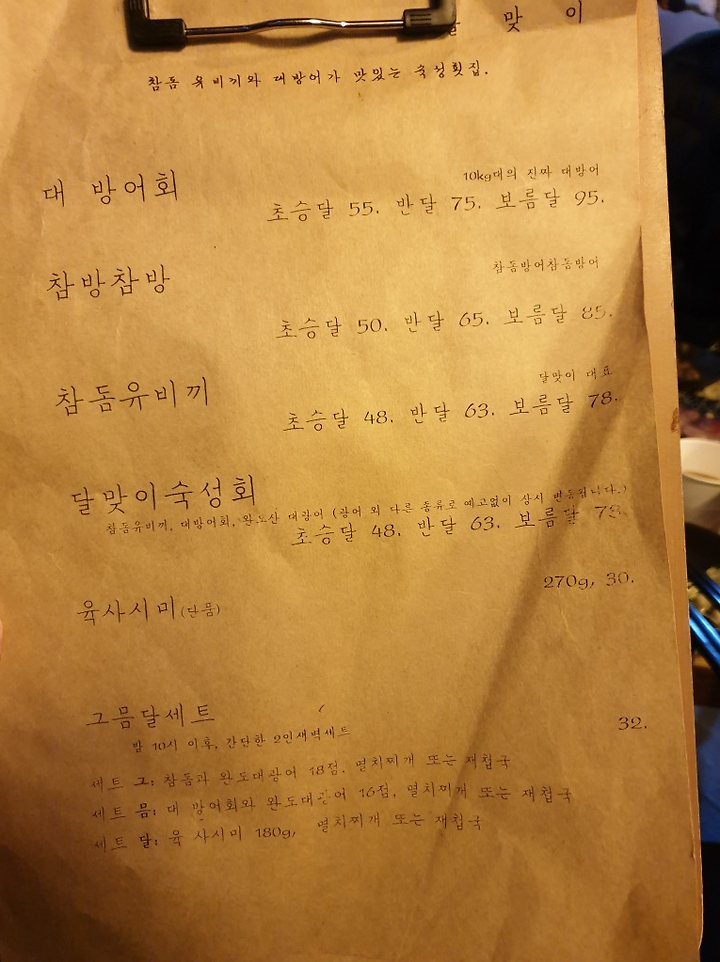 맞이
참돔 유비끼와 대방어가 맛있는 숙성횟집.
10kg대의 진짜 대방어
대 방어회
초승달 55. 반달 75. 보름달 95.
참돔방어참돔방어
참방참방
초승달 50. 반달 65. 보름달 85.
달맞이 대표
참돔유비끼
초승달 48. 반달 63. 보름달 78.
달맞이숙성회
참돔유비끼, 대방어회, 완도산 대광어 (광어 외 다른 종류로 예고없이 상시 변동됩니다.)
초승달 48. 반달 63. 보름달 73.
270g, 30.
육사시미(단품)
그믐달세트
32.
밤 10시 이후, 간단한 2인새벽세트
세트 그: 참돔과 완도대광어 18점, 멸치찌개 또는 재첩국
세트 믐: 대 방어회와 완도대광어 16점, 멸치찌개 또는 재첩국
세트 달: 육 사시미 180g, 멸치찌개 또는 재첩국